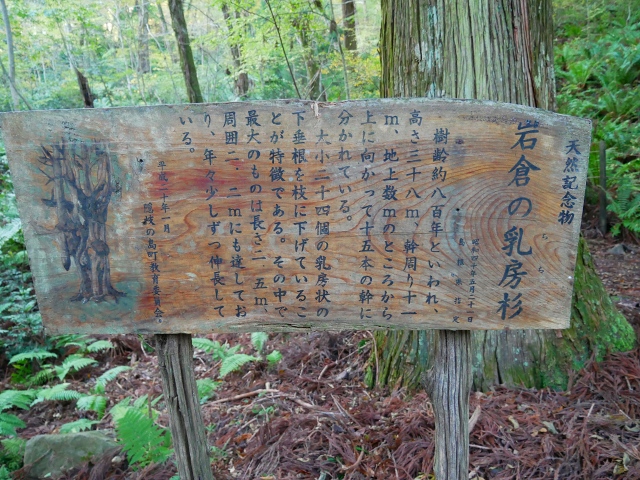 天然記念物
岩倉の乳房杉
ち
島根県指定
樹齢約八百年といわれ、
高さ三十八m、幹周り十一
m、地上数mのところから
上に向かって十五本の幹に
分かれている。
大小二十四個の乳房状の
下垂根を枝に下げているこ
とが特徴である。その中で
最大のものは長さ二.五m、
周囲二.二mにも達してお
り、年々少しずつ伸長して
いる。
平成二十年一月
隠岐の島町教育委員会